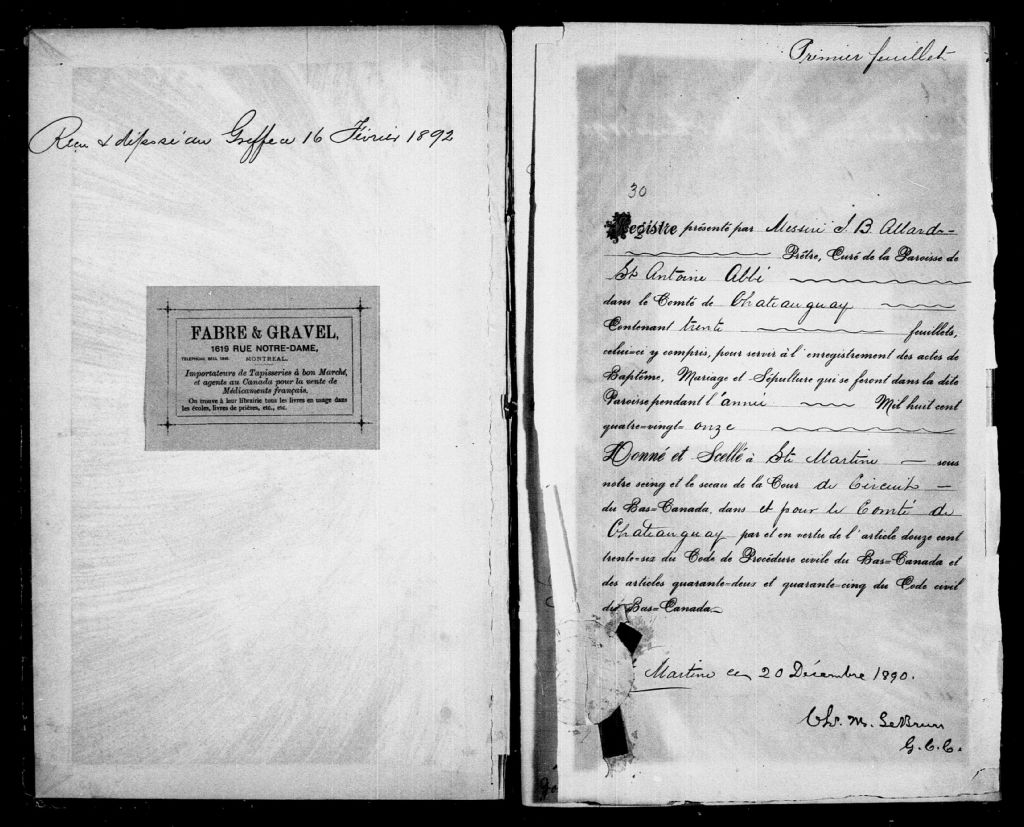 Reçu & déposé au Greffe ce 16 Février 1892
FABRE & GRAVEL,
1619 RUE NOTRE-DAME,
TELEPHONE BELL
MONTREAL.
Importateurs de Tapisseries à bon Marché,
et agents au Canada pour la vente de
Médicaments français.
On trouve à leur librairie tous les livres en usage dans
les écoles, livres de prières, etc., etc.
Premier feuillet
30
Registre présenté par Messire J. B. Allard
Prêtre, Curé de la Paroisse de
St Antoine Abbé
dans le Comté de Chateauguay
Contenant trente feuillets,
celui-ci y compris, pour servir à l'enregistrement des actes de
Baptême, Mariage et Sépulture qui se feront dans la dite
Paroisse pendant l'année Mil huit cent
quatre-vingt-onze
Donné et Scellé à Ste Martine sous
notre seing et le sceau de la Cour de Circuit
du Bas-Canada, dans et pour le Comté de
Chateauguay par et en vertu de l'article douze cent
trente-six du Code de Procédure civile du Bas-Canada et
des articles quarante-deux et quarante-cinq du Code civil
du Bas-Canada
Martine ce 20 Décembre 1890.
Chs. M. LeBrun
G. C. C.